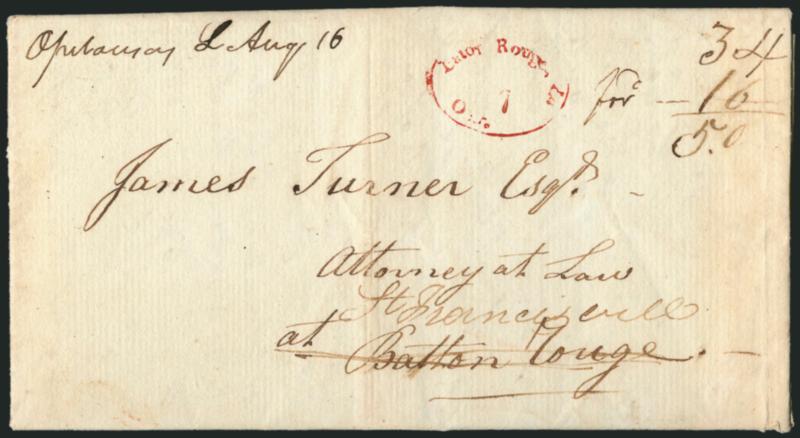 Opelousas L Aug 16
Baton Rouge, La
Oct. 7
34
for - 16
50
James Turner Esqr. -
Attorney at Law
St Francisville
at Batton Rouge. -